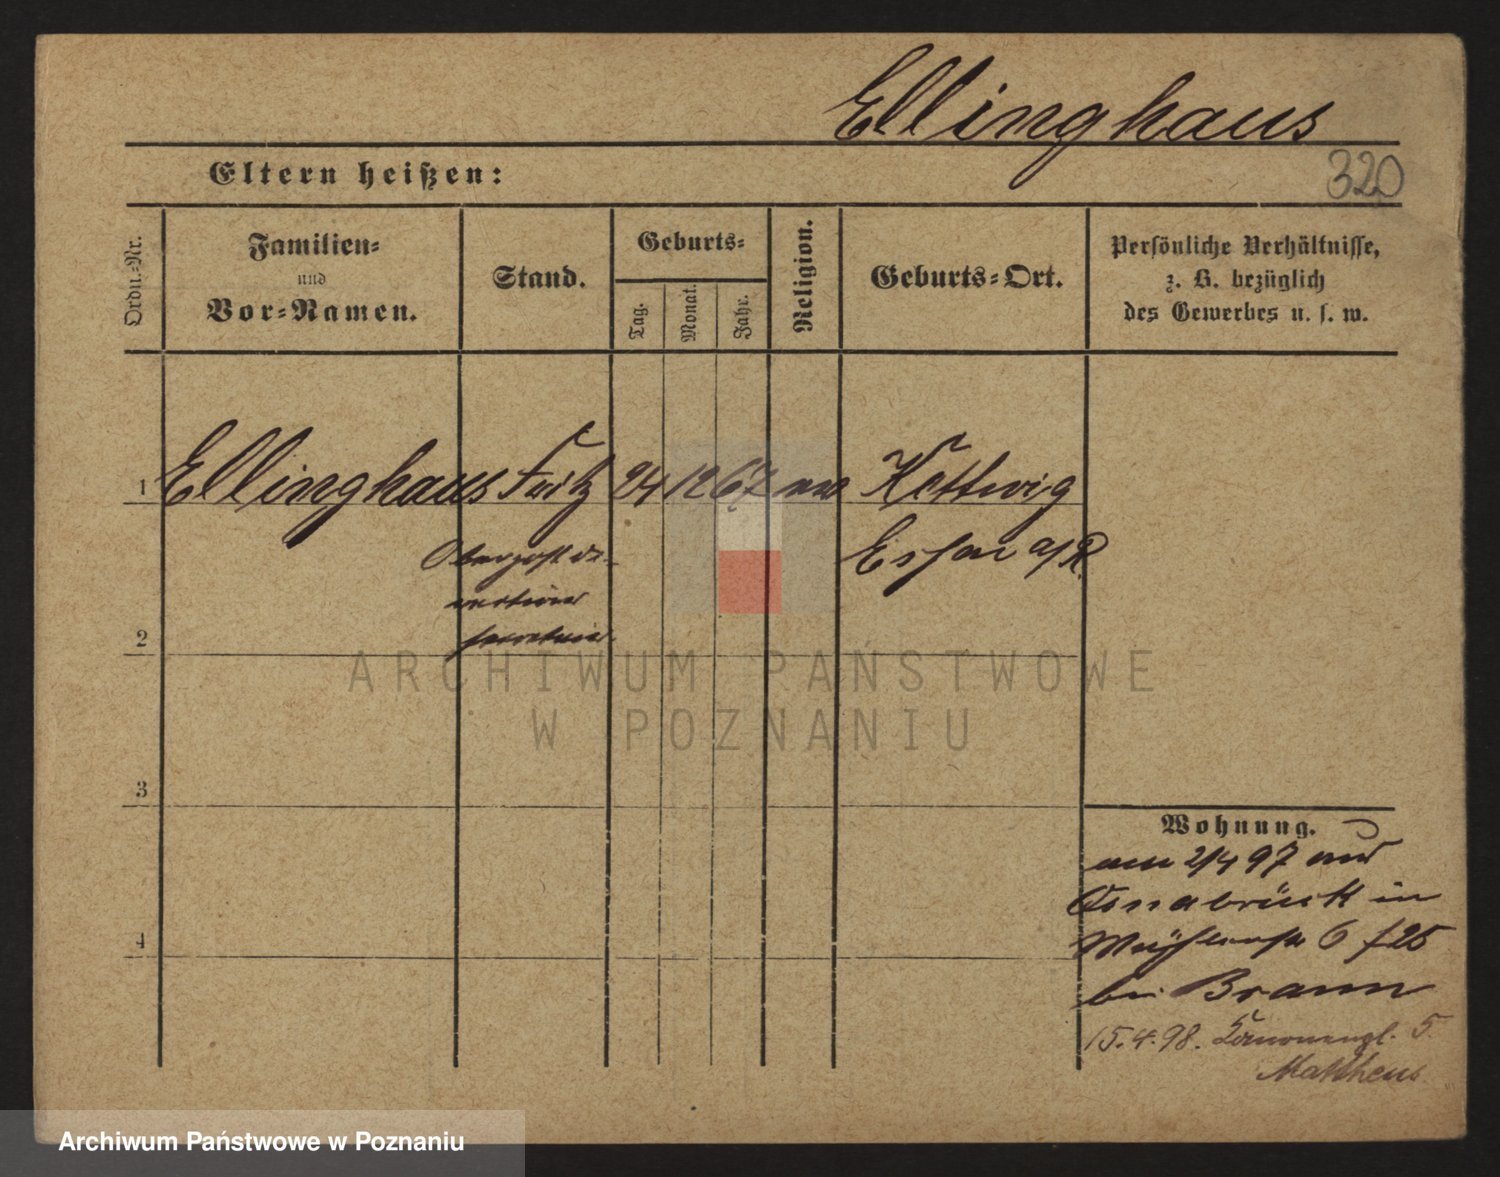 Ellinghaus
320
Eltern heißen:
Ordn.-Nr.
Familien-
und
Vor-Namen.
Stand.
Geburts-
Tag.
Monat.
Jahr.
Religion.
Geburts-Ort.
Persönliche Verhältnisse,
z. B. bezüglich
des Gewerbes u. s. w.
1 Ellinghaus Fritz 24 12 67 Kettwig
Essen a/R.
Oberpostdi-
rections
secretair
2
3
4
Wohnung.
am 2/4 97 aus
Osnabrück in
6
bei Braun
15.4.98. 5.
Mattheus
ARCHIWUM PAŃSTWOWE
W POZNANIU
Archiwum Państwowe w Poznaniu